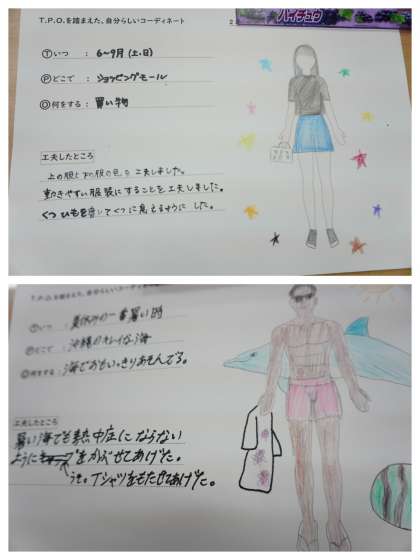 T.P.O.を踏まえた、自分らしいコーディネート
ハイチュウ
Ⓣいつ : 6～9月(土、日)
Ⓟどこで : ショッピングモール
Ⓞ何をする : 買い物
工夫したところ
上の服と下の服の色の工夫しました。
動きやすい服装にすることを工夫しました。
くつひもを書いてくつに見えるようにした。
T.P.O.を踏まえた、自分らしいコーディネ
Ⓣいつ : 夏休みの一番暑い時
Ⓟどこで : 沖縄のキレイな海
Ⓞ何をする : 海でおもいっきりあそんでる。
工夫したところ
暑い海でも熱中症にならない
ようにをかぶせてあげた。
Tシャツをもたせてあげた。